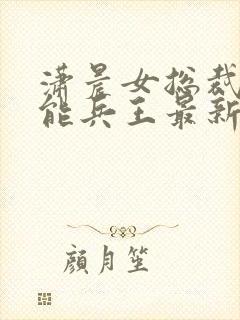 潇晨女总裁
能兵王最新
颜月笙